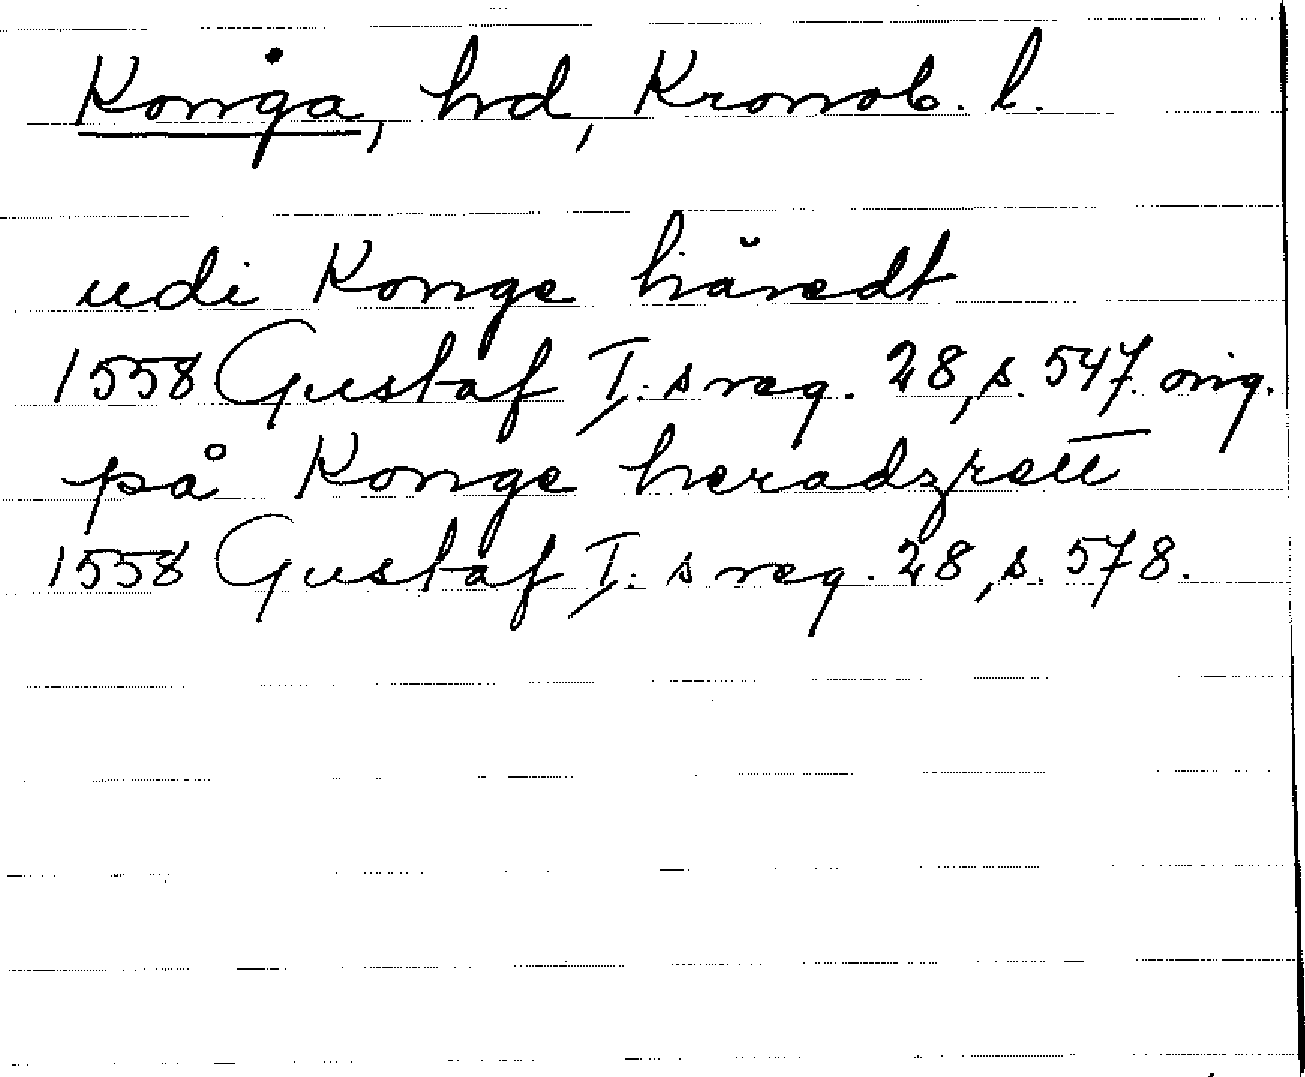 Konga, hrd, Kronob. l.
udi Konge häredt
1558 Gustaf I:s reg. 28, s. 547. orig.
på Konge heradzrett
1558 Gustaf I:s reg. 28, s. 578.